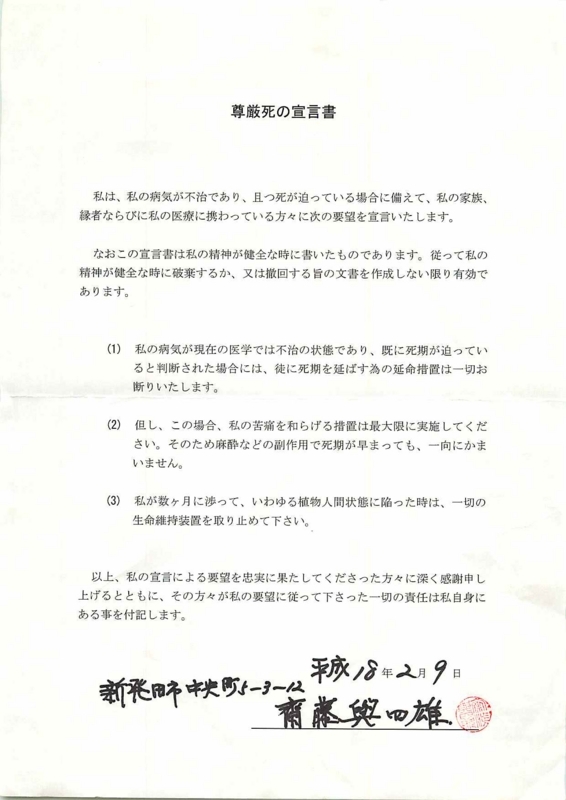 尊厳死の宣言書
私は、私の病気が不治であり、且つ死が迫っている場合に備えて、私の家族、
縁者ならびに私の医療に携わっている方々に次の要望を宣言いたします。
なおこの宣言書は私の精神が健全な時に書いたものであります。従って私の
精神が健全な時に破棄するか、又は撤回する旨の文書を作成しない限り有効で
あります。
(1) 私の病気が現在の医学では不治の状態であり、既に死期が迫ってい
ると判断された場合には、徒に死期を延ばす為の延命措置は一切お
断りいたします。
(2) 但し、この場合、私の苦痛を和らげる措置は最大限に実施してくだ
さい。そのため麻酔などの副作用で死期が早まっても、一向にかま
いません。
(3) 私が数ヶ月に渉って、いわゆる植物人間状態に陥った時は、一切の
生命維持装置を取り止めて下さい。
以上、私の宣言による要望を忠実に果たしてくださった方々に深く感謝申し
上げるとともに、その方々が私の要望に従って下さった一切の責任は私自身に
ある事を付記します。
平成18年2月9日
新発田市中央町5-3-12
齋藤與四雄